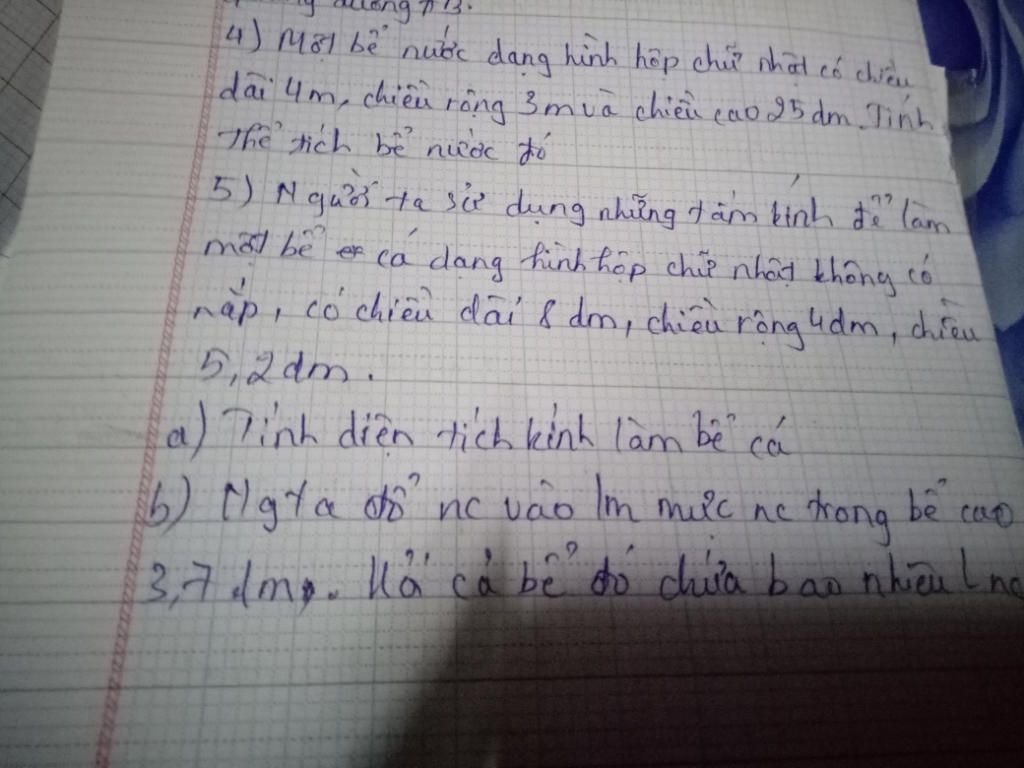 4) Một bể nước dạng hình hộp chữ nhật có chiều
dài 4m, chiều rộng 3m và chiều cao 25 dm. Tính
Thể tích bể nước đó
5) Người ta sử dụng những tấm kính để làm
một bể cá dạng hình hộp chữ nhật không có
nắp, có chiều dài 8 dm, chiều rộng 4dm, chiều
5,2dm.
a) Tính diện tích kính làm bể cá
b) Ngta đổ nc vào mực nc trong bể cao
3,7 dm. Hỏi cả bể đó chứa bao nhiêu l nc